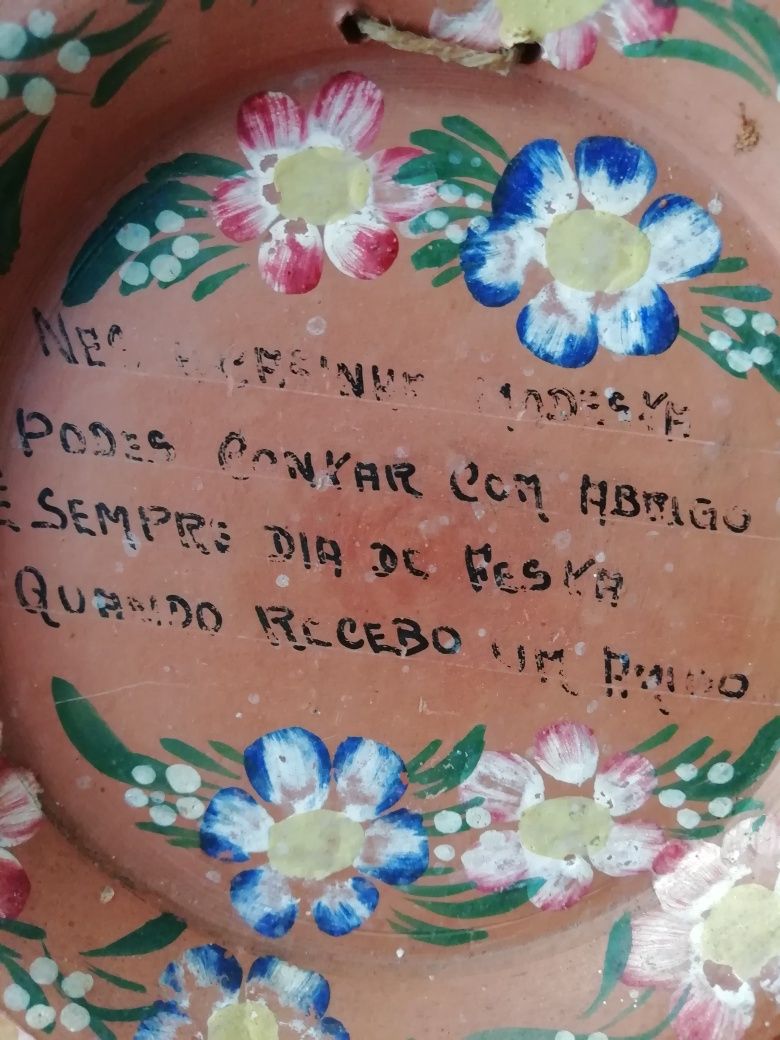 NESTA CASINHA MODESTA
PODES CONTAR COM ABRIGO
É SEMPRE DIA DE FESTA
QUANDO RECEBO UM AMIGO